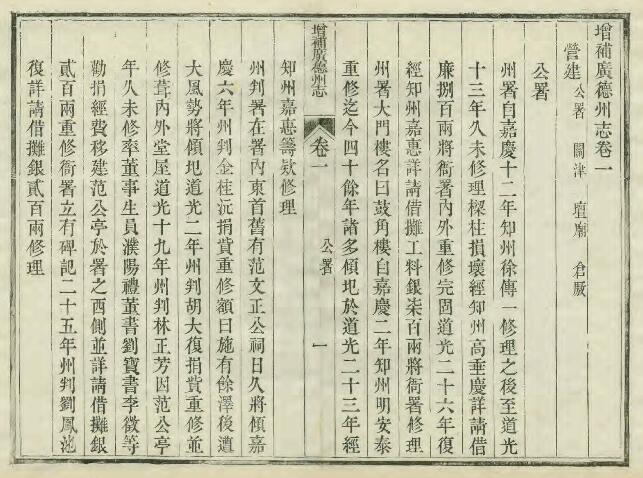 增補廣德州志卷一
營建 公署 關津 壇廟 倉厫
公署
州署自嘉慶十二年知州徐傳一修理之後至道光
十三年久未修理樑柱損壞經知州高垂慶詳請借
廉捌百兩將衙署內外重修完固道光二十六年復
經知州嘉惠詳請借攤工料銀柒百兩將衙署修理
州署大門樓名曰鼓角樓自嘉慶二年知州明安泰
重修迄今四十餘年諸多傾圮於道光二十三年經
增補廣德州志 卷一 公署 一
知州嘉惠籌欵修理
州判署在署內東首舊有范文正公祠日久將傾嘉
慶六年州判金桂沅捐貲重修額曰施有餘澤後遭
大風勢將傾圮道光二年州判胡大復捐貲重修並
修葺內外堂屋道光十九年州判林正芳因范公亭
年久未修率董事生員濮陽禮董書劉寶書李徵等
勸捐經費移建范公亭於署之西側並詳請借攤銀
貳百兩重修衙署立有碑記二十五年州判劉鳳池
復詳請借攤銀貳百兩修理